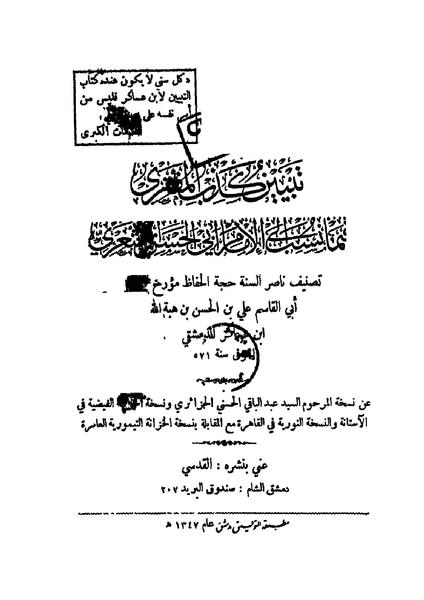 « كل سني لا يكون عنده كتاب
التبيين لابن عساكر فليس من
نفسه على
الكبرى
تبيين كذب المفتري
فيما نسب إلى الإمام أبي الحسن الأشعري
تصنيف ناصر السنة حجة الحفاظ مؤرخ
أبي القاسم علي بن الحسن بن هبة الله
ابن عساكر الدمشقي
سنة ٥٧١
عن نسخة المرحوم السيد عبد الباقي الحسني الجزائري ونسخة الفيضية في
الآستانة والنسخة النورية في القاهرة مع المقابلة بنسخة الخزانة التيمورية العامرة
عني بنشره : القدسي
دمشق الشام : صندوق البريد ٢٠٧
مطبعة التوفيق بدمشق عام ١٣٤٧ هـ